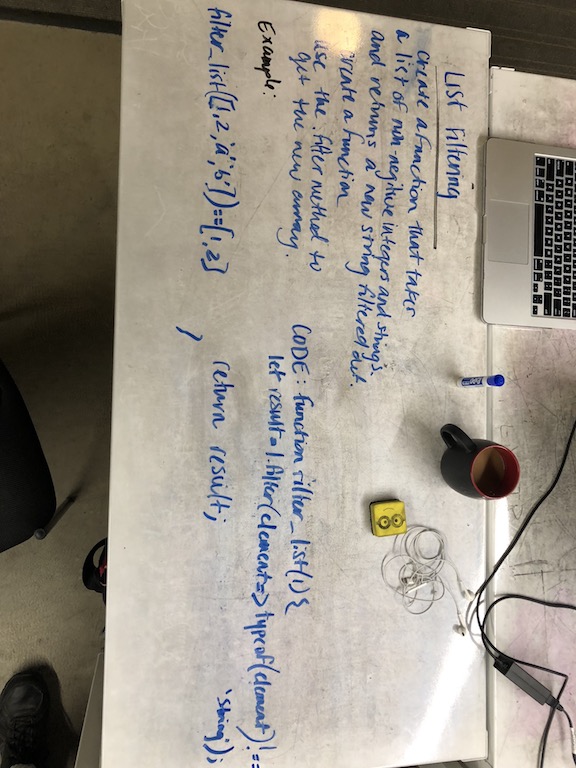 LIST Filtering
create a function that takes
a list of non-negitive integers and strings
and returns a new string filtered out.
create a function
use the .filter method to
get the new array.
Example:
filter_list([1,2,'a','b'])==[1,2]
CODE: function filter_list(l){
let result=l.filter(element=>typeof(element)!==
'string');
return result;
}